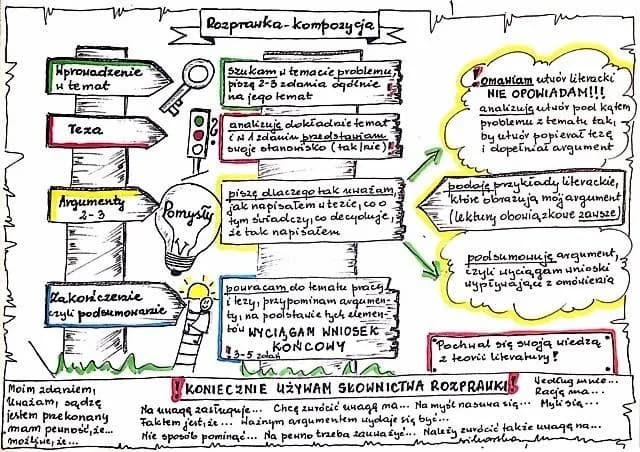 Rozprawka-kompozycja
Wprowadzenie
w temat
szukam w temacie problemu,
piszę 2-3 zdania ogólnie
na jego temat
Teza
analizuję dokładnie temat
i w 1 zdaniu przedstawiam
swoje stanowisko (tak/nie)!
Argumenty
2-3
Pomysły
piszę dlaczego tak uważam,
jak napisałem w tezie, co o
tym świadczy, co decyduje,
że tak napisałem
Zakończenie
czyli podsumowanie
powracam do tematu pracy
i tezy, przypominam argumen-
ty, na podstawie tych elemen-
tów WYCIĄGAM WNIOSEK
KOŃCOWY
! 3-5 zdań
! omawiam utwór literacki
NIE OPOWIADAM!!!
analizuję utwór pod kątem
problemu z tematu tak,
by utwór popierał tezę
i dopełniał argument
podaję przykłady literackie,
które obrazują mój argument
(lektury obowiązkowe zawsze)
podsumowuję argument,
czyli wyciągam wnioski
wypływające z omówienia
Pochwal się swoją wiedzą
z teorii literatury!
! KONIECZNIE UŻYWAM SŁOWNICTWA ROZPRAWKI!
Moim zdaniem,
Uważam, sądzę
jestem przekonany
mam pewność, że...
możliwe, że...
Na uwagę zasługuje... Chcę zwrócić uwagę na... Na myśl nasuwa się...
Faktem jest, że... Ważnym argumentem wydaje się być...
Nie sposób pominąć... Na pewno trzeba zauważyć... Należy zwrócić także uwagę na...
Według mnie...
Rację ma...
Myli się...